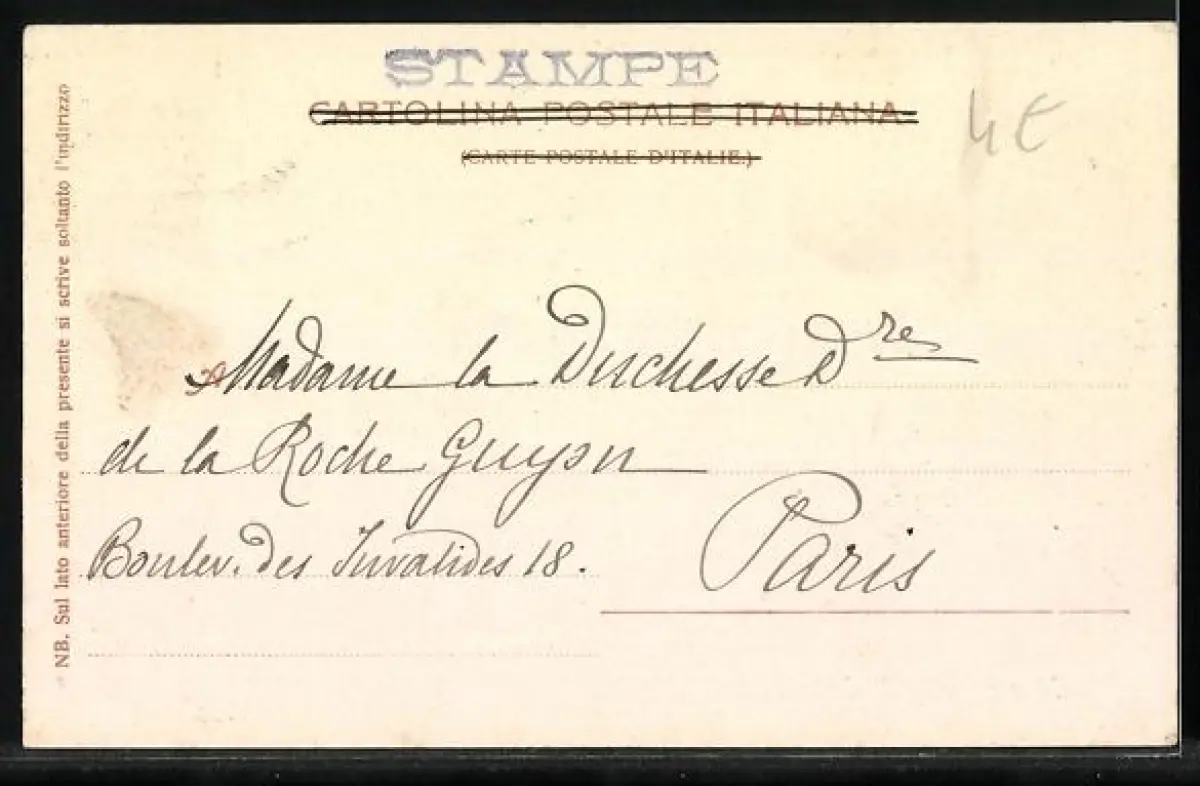 STAMPE
CARTOLINA POSTALE ITALIANA
(CARTE POSTALE D'ITALIE.)
4€
Madame la Duchesse Dre
de la Roche Guyon
Boulev. des Invalides 18.
Paris
NB. Sul lato anteriore della presente si scrive soltanto l'indirizzo